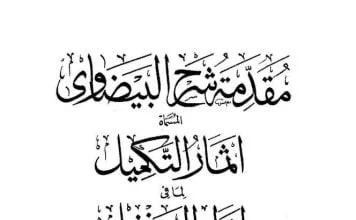 مُقَدِّمَة شَرْح البَيضَاوى
المُسَمَّاة
اثمَارُ التَّكمِيل
لِمَا فى